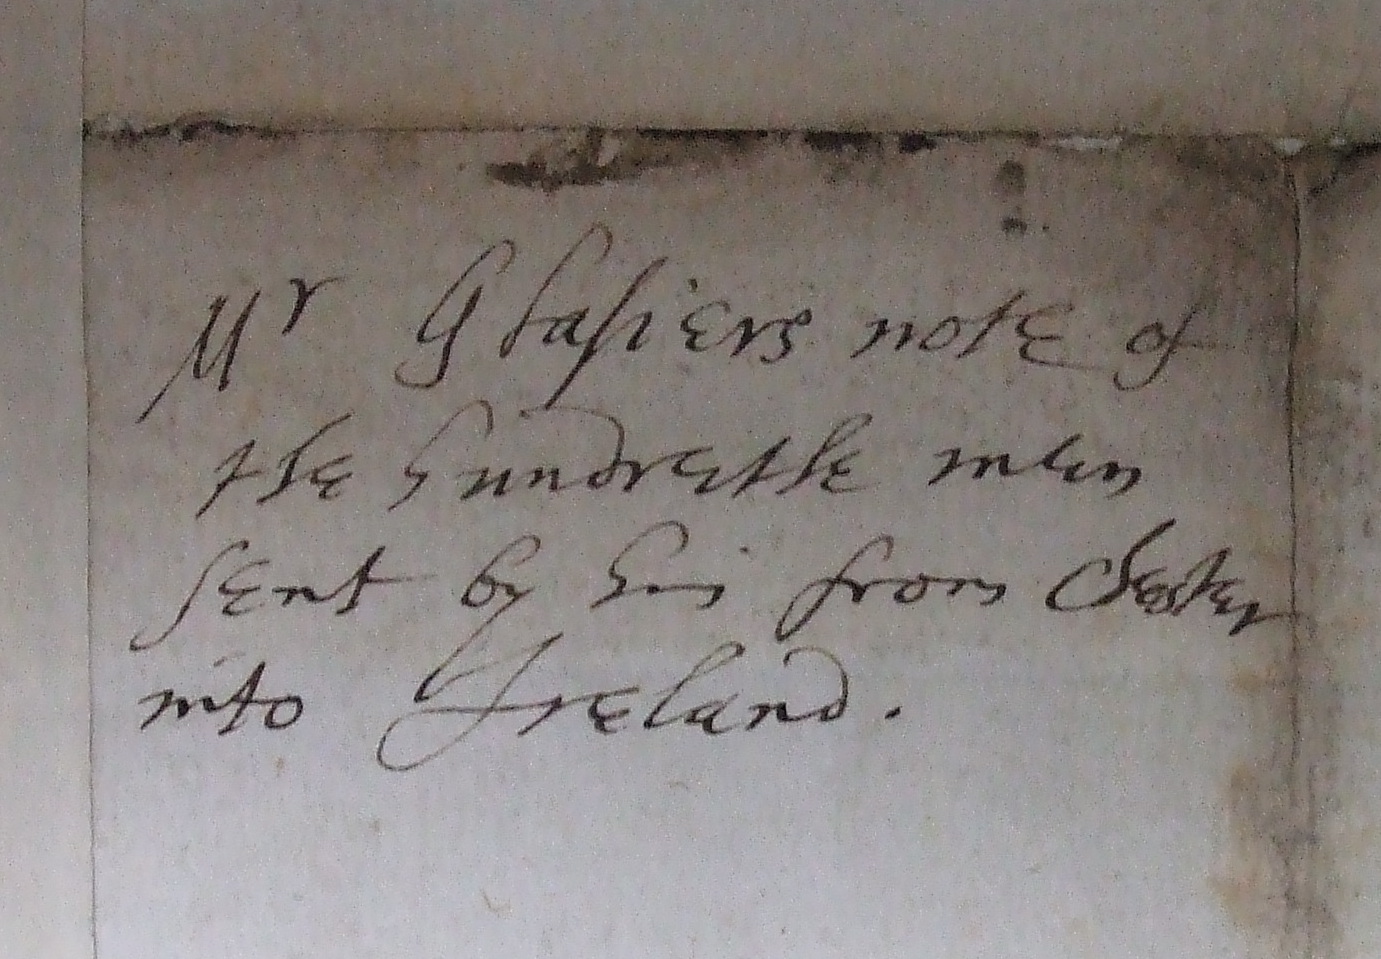 Mr Glasiers note of
the hundrethe men
sent by him from Chester
into Ireland.